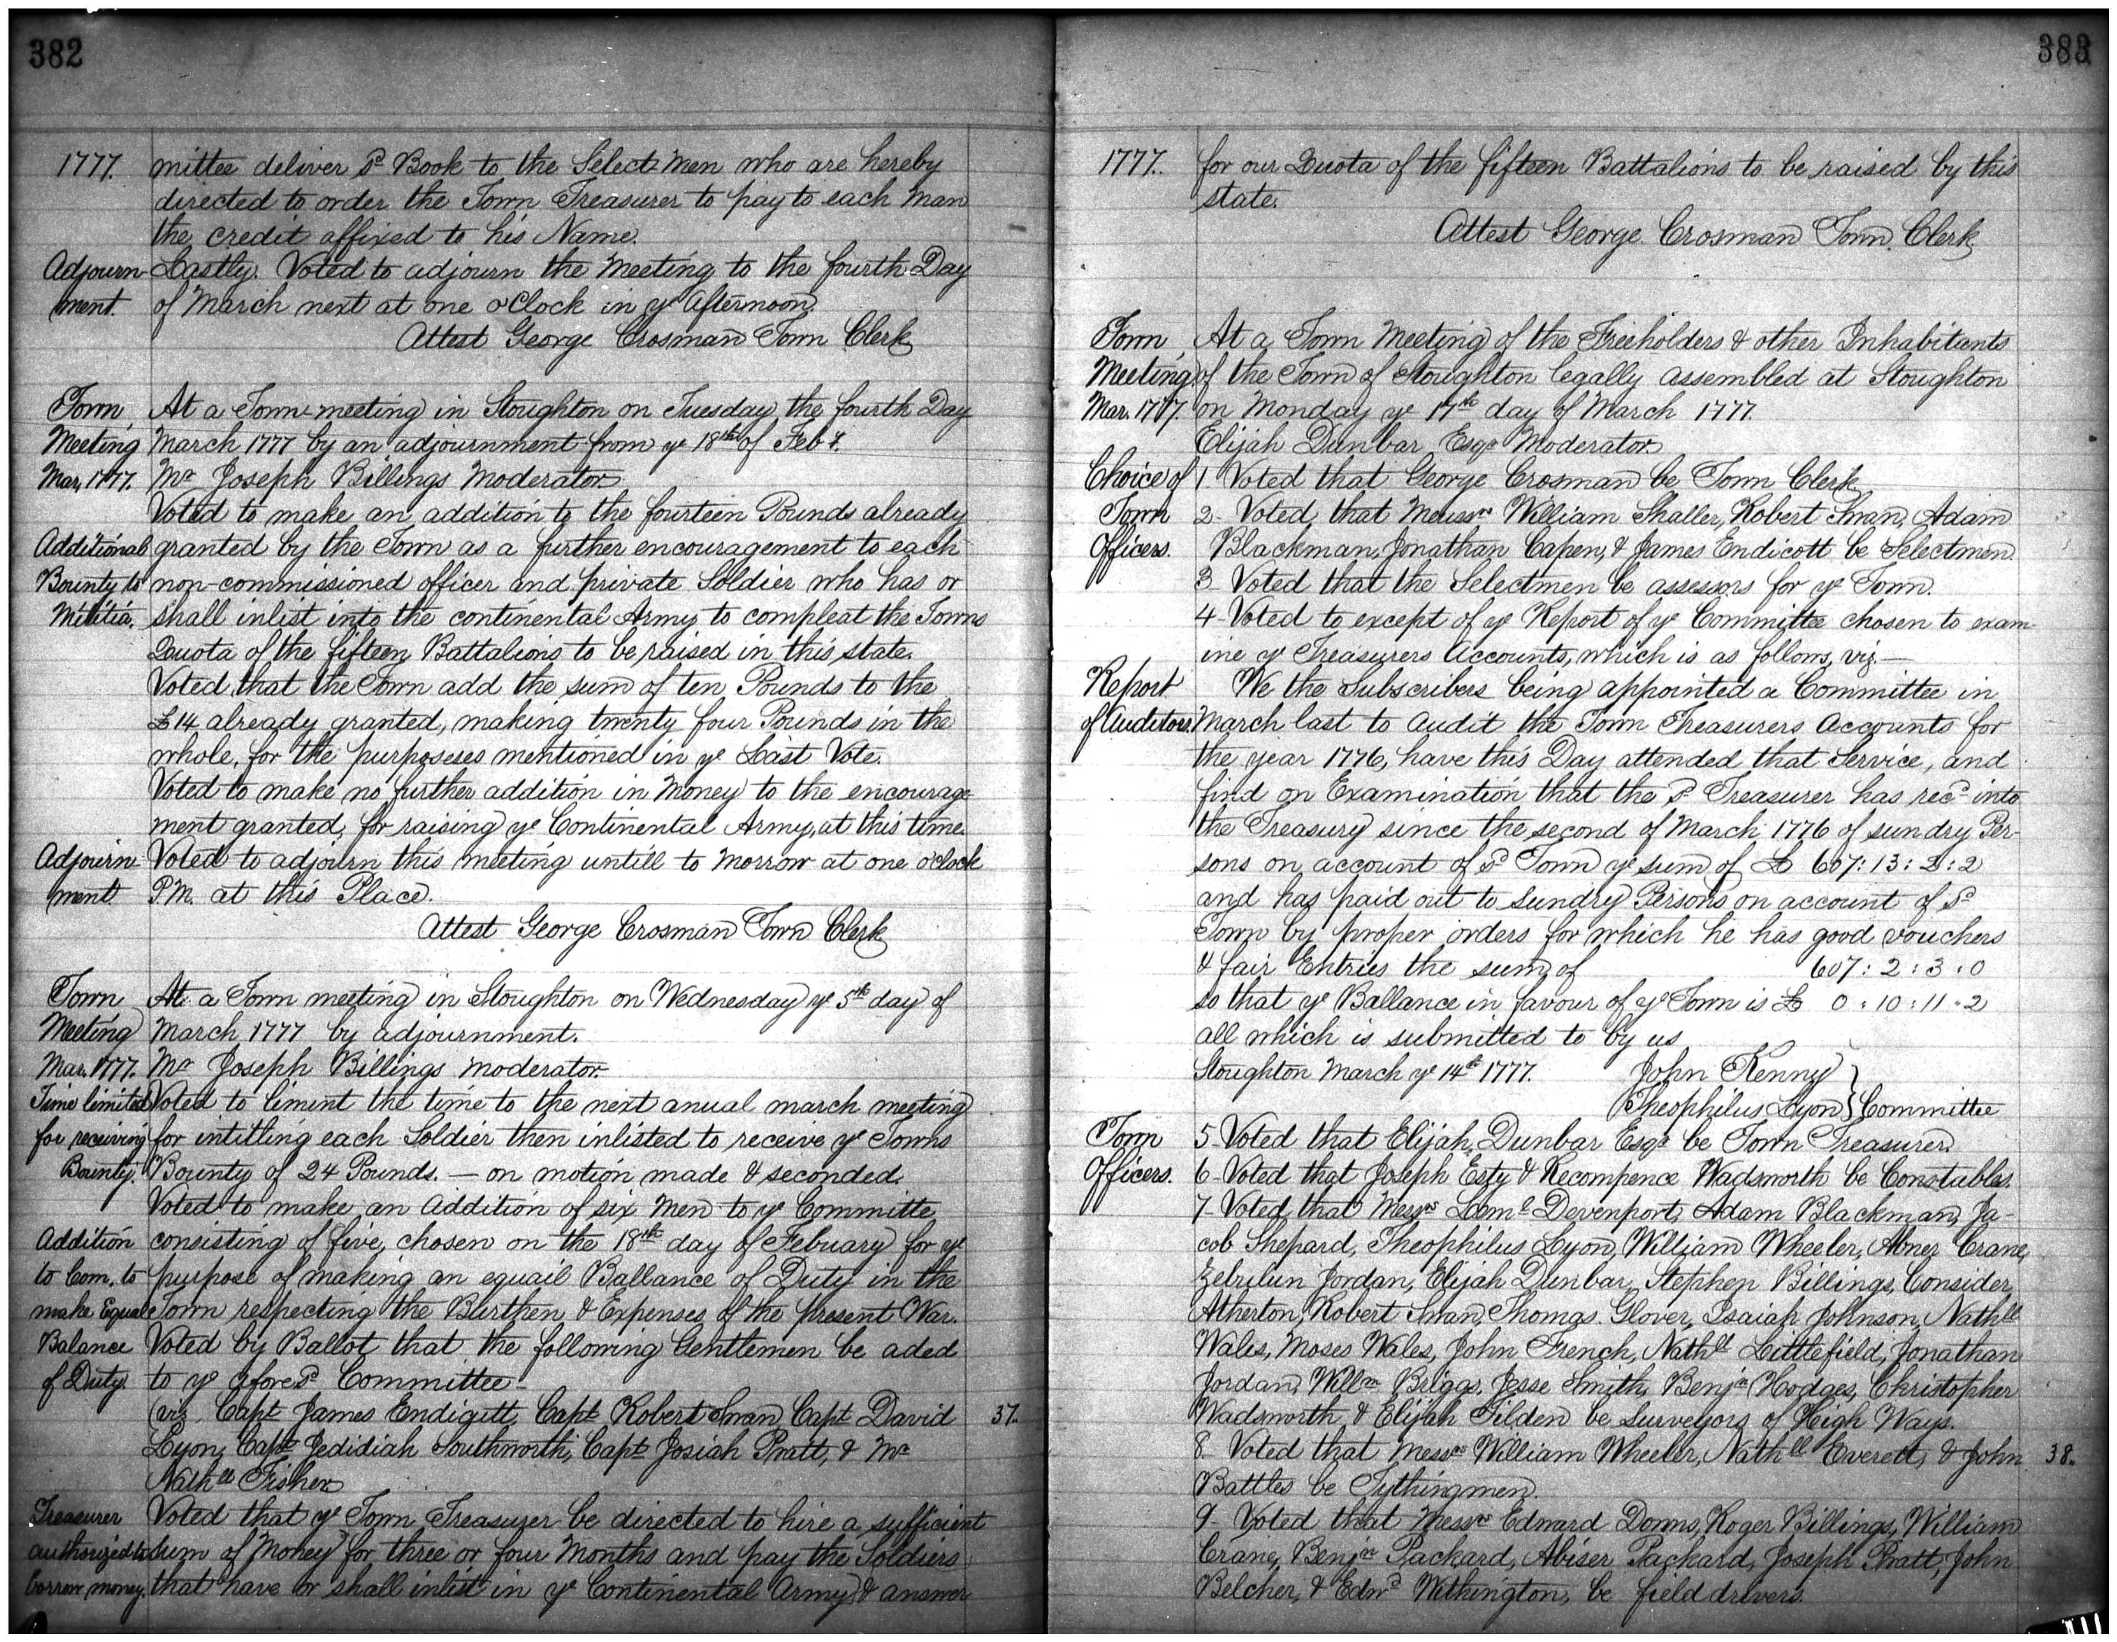 382
1777. mittee deliver sd Book to the Select Men who are hereby
directed to order the Town Treasurer to pay to each man
the credit affixed to his Name.
Adjourn- Lastly. Voted to adjourn the Meeting to the fourth Day
ment. of March next at one o'Clock in ye Afternoon.
Attest George Crosman Town Clerk
Town At a Town meeting in Stoughton on Tuesday the fourth Day
Meeting March 1777 by an adjournment from ye 18th of Feby.
Mar. 1777. Mr Joseph Billings Moderator.
Voted to make an addition to the fourteen Pounds already
Additional granted by the Town as a further encouragement to each
Bounty to non-commissioned officer and private Soldier who has or
Militia. shall inlist into the continental Army to compleat the Towns
Quota of the fifteen Battalions to be raised in this state.
Voted that the Town add the sum of ten Pounds to the
£14 already granted, making twenty four Pounds in the
whole, for the purposeses mentioned in ye Last Vote.
Voted to make no further addition in Money to the encourage
ment granted, for raising ye Continental Army, at this time.
Adjourn- Voted to adjourn this meeting untill to morrow at one o'clock
ment P.M. at this Place.
Attest George Crosman Town Clerk
Town At a Town meeting in Stoughton on Wednesday ye 5th day of
Meeting March 1777 by adjournment.
Mar. 1777. Mr Joseph Billings moderator.
Time limited Voted to limint the time to the next anual march meeting
for receiving for intitling each Soldier then inlisted to receive ye Towns
Bounty. Bounty of 24 Pounds. — on motion made & seconded.
Voted to make an addition of six Men to ye Committe
Addition consisting of five, chosen on the 18th day of Febuary for ye
to Com. to purpose of making an equail Ballance of Duty in the
make Equal Town respecting the Burthen & Expenses of the present War.
Balance Voted by Ballot that the following Gentlemen be aded
of Duty. to ye aforesd Committee-
(viz Capt James Endigutt, Capt Robert Swan Capt David 37.
Lyon, Capt Jedidiah Southworth, Capt Josiah Pratt, & Mr
Nathll Fisher
Treasurer Voted that ye Town Treasurer be directed to hire a sufficient
authorized to sum of Money for three or four Months and pay the Soldiers
borrow money. that have or shall inlist in ye Continental Army & answer
383
1777. for our Quota of the fifteen Battalions to be raised by this
state.
Attest George Crosman Town Clerk
Town At a Town Meeting of the Freeholders & other Inhabitants
Meeting of the Town of Stoughton legally assembled at Stoughton
Mar. 1777. on Monday ye 17th day of March 1777.
Elijah Dunbar Esqr Moderator.
Choice of 1 Voted that George Crosman be Town Clerk
Town 2- Voted that Messrs William Shaller, Robert Swan, Adam
Officers. Blackman, Jonathan Capen, & James Endicott be Selectmen.
3 Voted that the Selectmen be assessors for ye Town.
4- Voted to except of ye Report of ye Committee chosen to exam-
ine ye Treasurers Accounts, which is as follows, viz —
Report We the Subscribers being appointed a Committee in
of Auditors. March last to audit the Town Treasurers Accounts for
the year 1776, have this Day attended that Service, and
find on Examination that the sd Treasurer has recd into
the Treasury since the second of March 1776 of sundry Per-
sons on account of sd Town ye sum of £ 607:13:2:2
and has paid out to Sundry Persons on account of sd
Town by proper orders for which he has good vouchers
& fair Entries the sum of 607:2:3:0
so that ye Ballance in favour of ye Town is £ 0:10:11-2
all which is submitted to by us
Stoughton March ye 14th 1777. John Kenny
Theophilus Lyon } Committee
Town 5 Voted that Elijah Dunbar Esqr be Town Treasurer.
Officers. 6- Voted that Joseph Esty & Recompence Wadsworth be Constables.
7- Voted that Messrs Leml Devenport, Adam Blackman, Ja-
cob Shepard, Theophilus Lyon, William Wheeler, Abner Crane,
Zebulun Jordan, Elijah Dunbar, Stephen Billings, Consider
Atherton, Robert Swan, Thomas Glover, Isaiah Johnson, Nathll
Wales, Moses Wales, John French, Nathll Littlefield, Jonathan
Jordan, Willm Briggs, Jesse Smith, Benjn Hodges, Christopher
Wadsworth & Elijah Tilden be Surveyors of High Ways.
8. Voted that Messrs William Wheeler, Nathll Everett, & John 38.
Battles be Tythingmen.
9- Voted that Messrs Edward Downs, Roger Billings, William
Crane, Benjn Packard, Abiser Packard, Joseph Pratt, John
Belcher, & Edwd Withington, be field drivers.